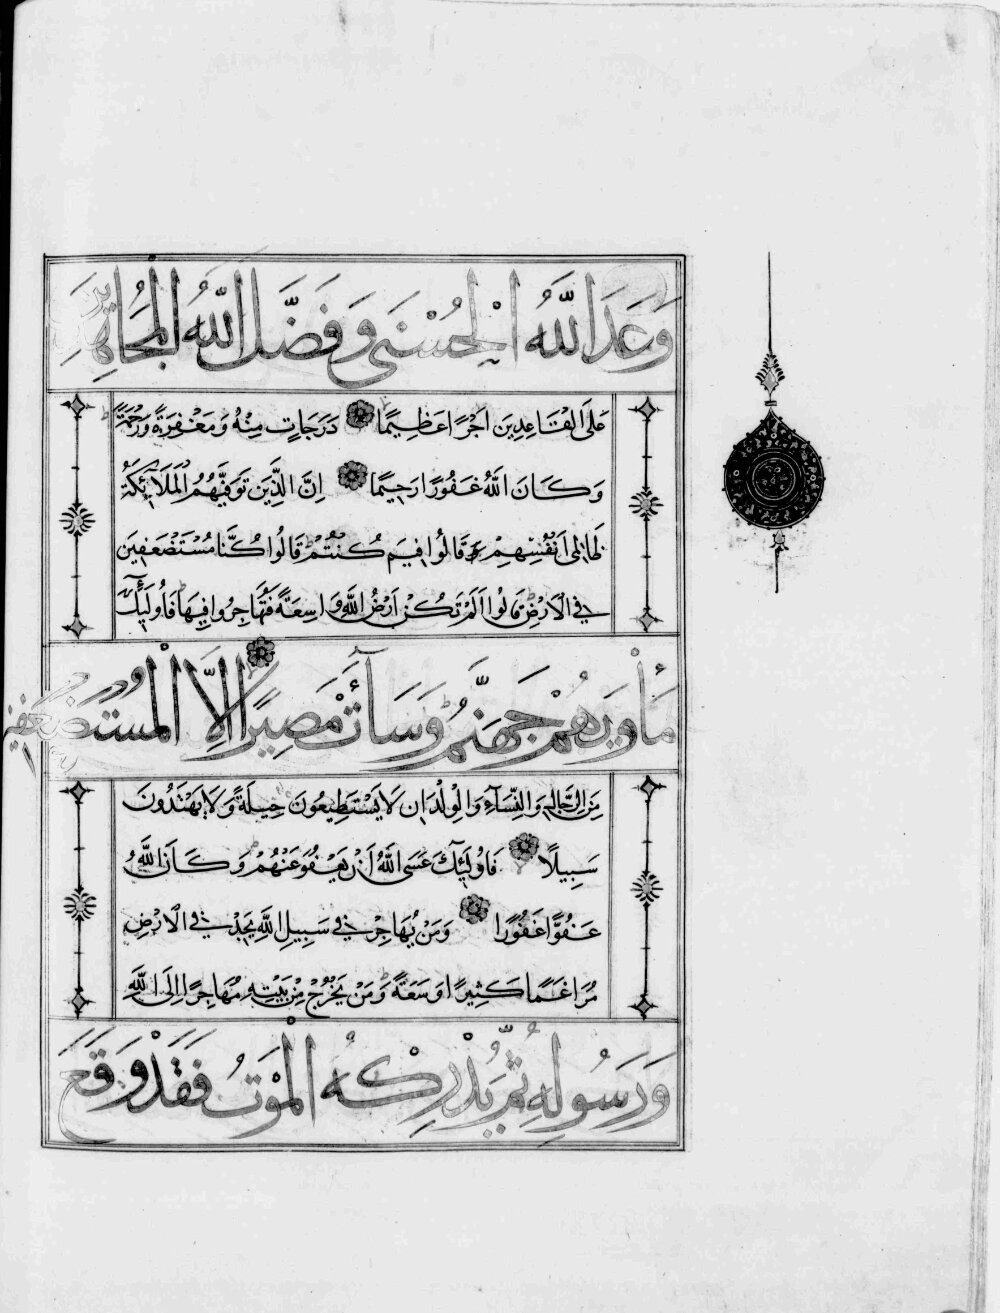 وَعَدَ اللَّهُ الْحُسْنَى وَفَضَّلَ اللَّهُ الْمُجَاهِدِينَ
عَلَى الْقَاعِدِينَ اَجْرًا عَظِيمًا دَرَجَاتٍ مِنْهُ وَمَغْفِرَةً وَرَحْمَةً
وَكَانَ اللَّهُ غَفُورًا رَحِيمًا اِنَّ الَّذِينَ تَوَفَّيهُمُ الْمَلَائِكَةُ
ظَالِمِى اَنْفُسِهِمْ قَالُوا فِيمَ كُنْتُمْ قَالُوا كُنَّا مُسْتَضْعَفِينَ
فِى الْاَرْضِ قَالُوا اَلَمْ تَكُنْ اَرْضُ اللَّهِ وَاسِعَةً فَتُهَاجِرُوا فِيهَا فَاُولَئِكَ
مَأْوَيهُمْ جَهَنَّمُ وَسَآءَتْ مَصِيرًا اِلَّا الْمُسْتَضْعَفِينَ
مِنَ الرِّجَالِ وَالنِّسَآءِ وَالْوِلْدَانِ لَا يَسْتَطِيعُونَ حِيلَةً وَلَا يَهْتَدُونَ
سَبِيلًا فَاُولَئِكَ عَسَى اللَّهُ اَنْ يَعْفُوَ عَنْهُمْ وَكَانَ اللَّهُ
عَفُوًّا غَفُورًا وَمَنْ يُهَاجِرْ فِى سَبِيلِ اللَّهِ يَجِدْ فِى الْاَرْضِ
مُرَاغَمًا كَثِيرًا وَسَعَةً وَمَنْ يَخْرُجْ مِنْ بَيْتِهِ مُهَاجِرًا اِلَى اللَّهِ
وَرَسُولِهِ ثُمَّ يُدْرِكْهُ الْمَوْتُ فَقَدْ وَقَعَ